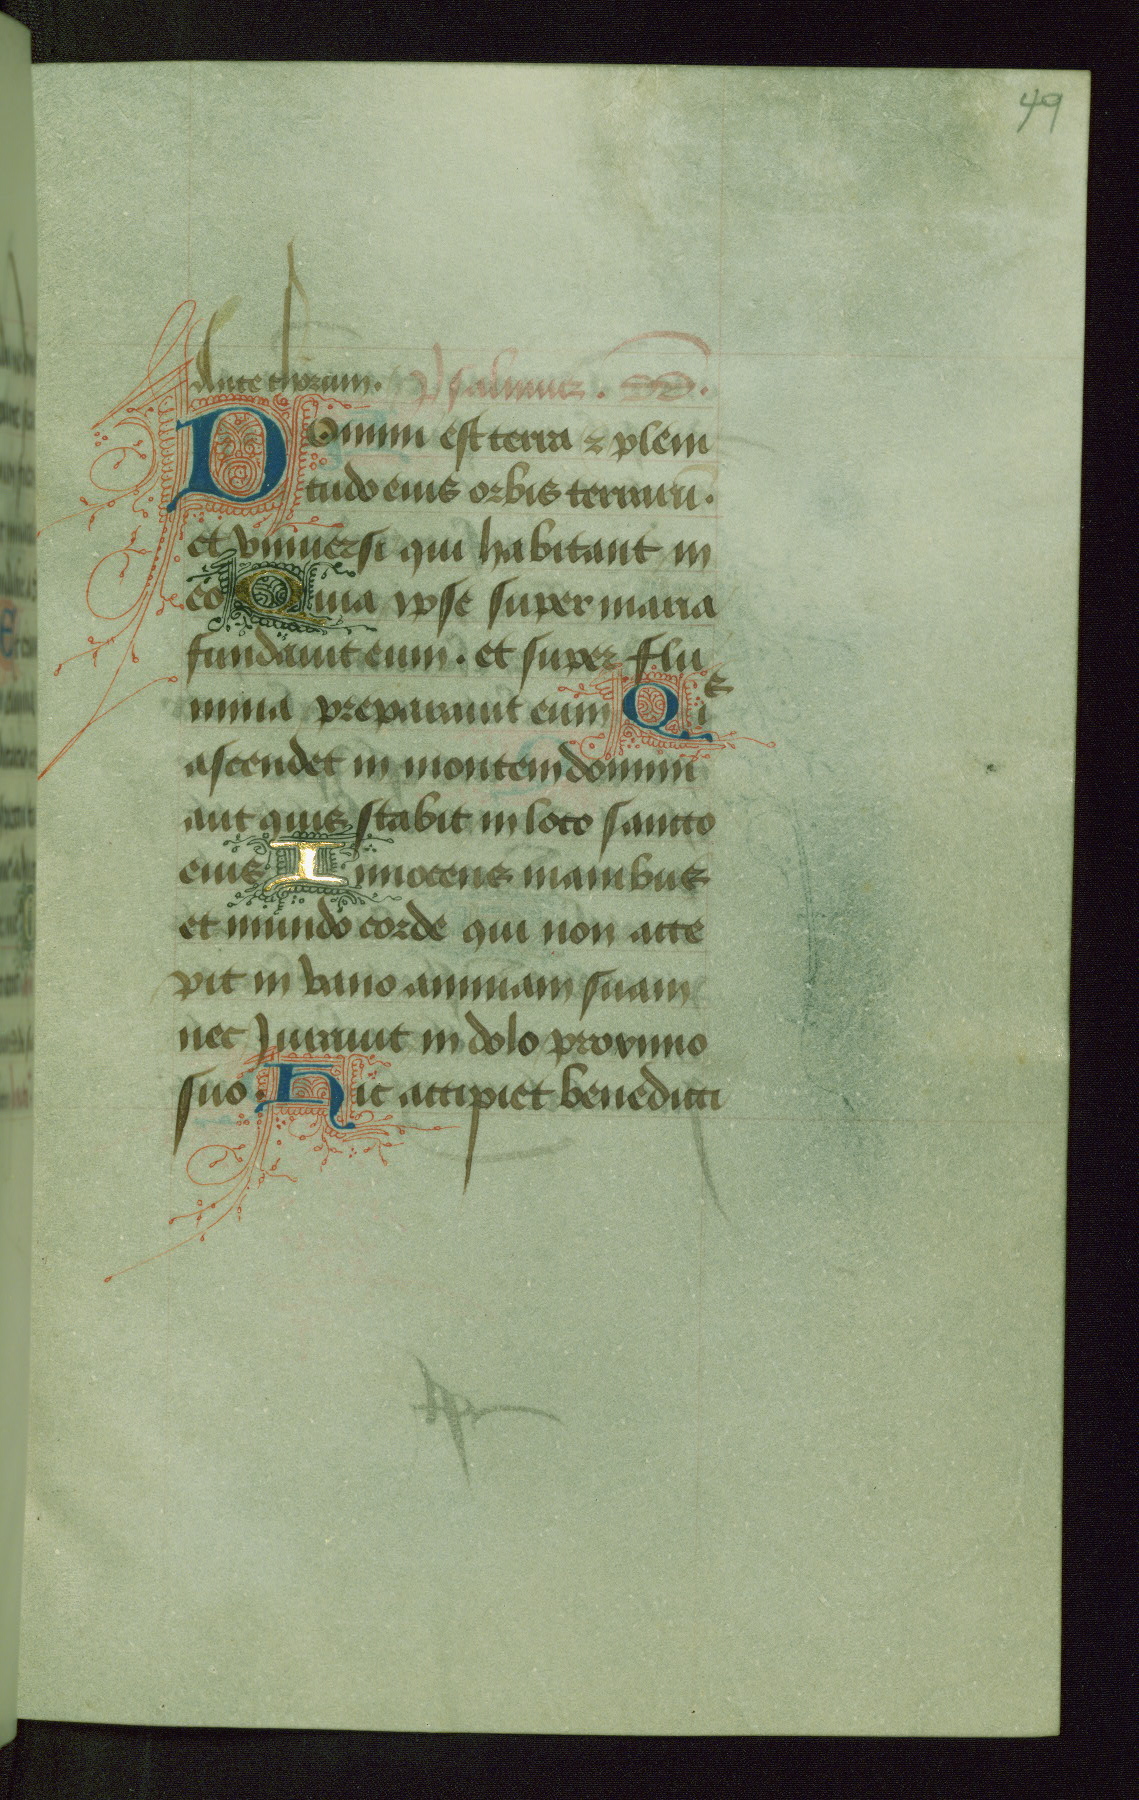 49
Ante thorum. Psalmus.
Domini est terra ⁊ pleni
tudo eius orbis terraru.
et vniuersi qui habitant in
eo Quia ipse super maria
fundauit eum. et super flu
mina preparauit eum Qis
ascendet in montem domini
aut quis stabit in loco sancto
eius Innocens manibus
et mundo corde qui non acce
pit in vano animam suam
nec Iurauit in dolo proximo
suo. Hic accipiet benedicti